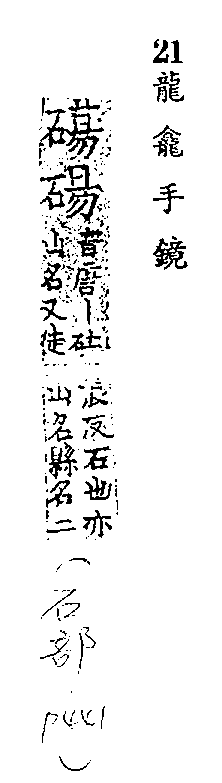 21 龍龕手鏡
碭
音唐丨
山名又徒
浪反石也亦
山名縣名二
（石部 p441）